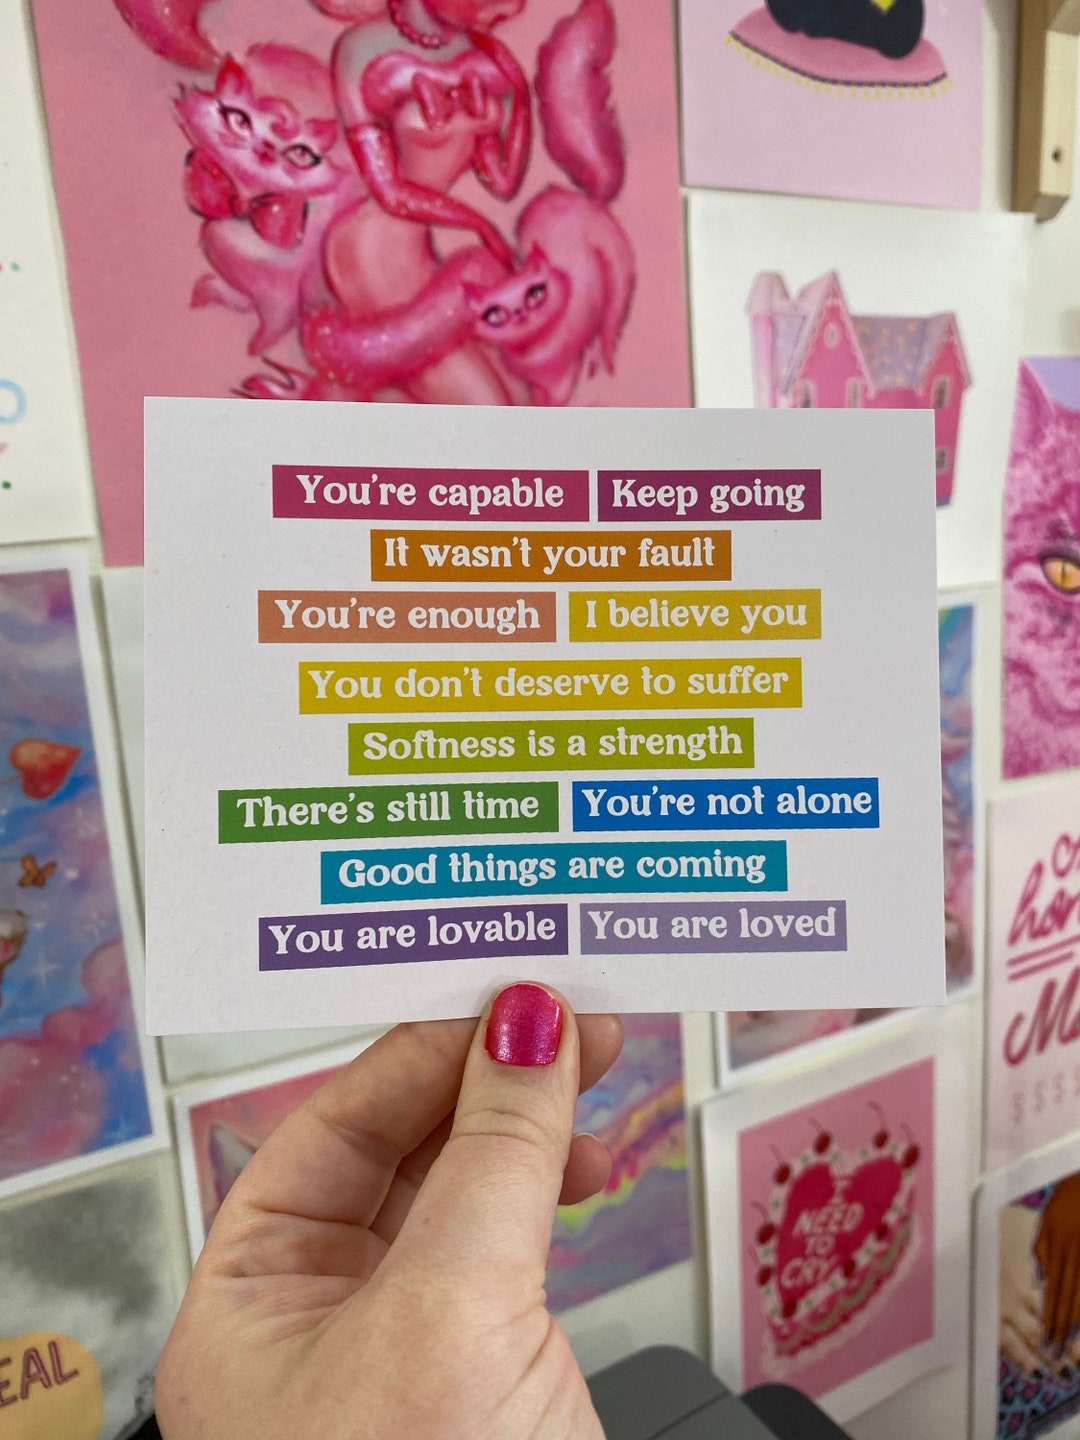 You're capable Keep going
It wasn't your fault
You're enough I believe you
You don't deserve to suffer
Softness is a strength
There's still time You're not alone
Good things are coming
You are lovable You are loved
I
NEED
TO
CRY
EAL